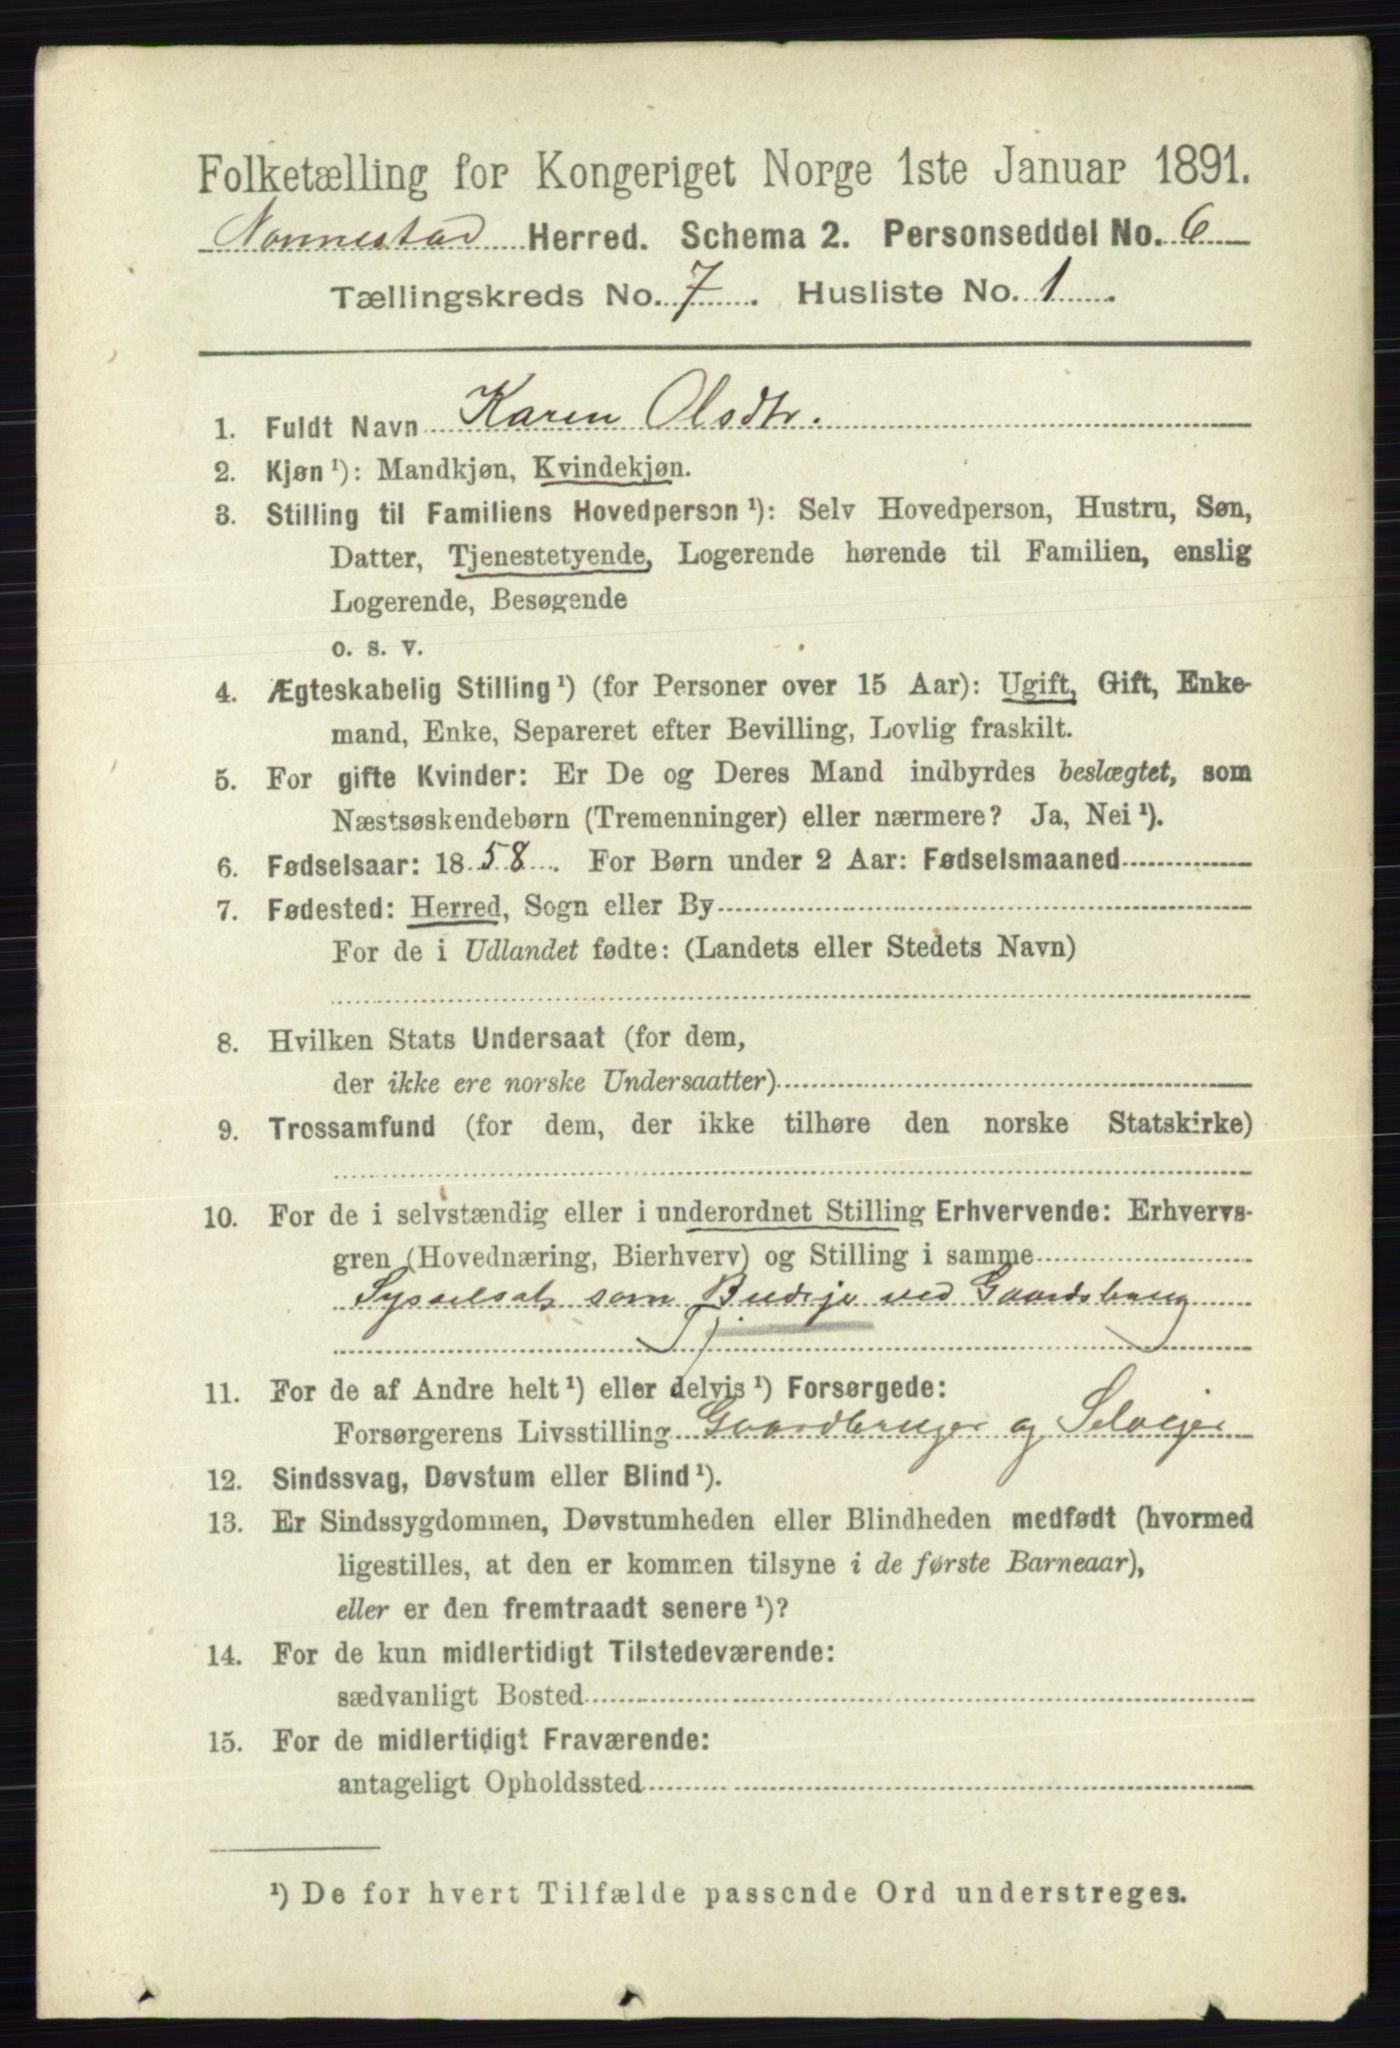 Folketælling for Kongeriget Norge 1ste Januar 1891.
Nannestad Herred. Schema 2. Personseddel No. 6
Tællingskreds No. 7. Husliste No. 1.
1. Fuldt Navn Karen Olsdtr.
2. Kjøn¹): Mandkjøn, Kvindekjøn.
3. Stilling til Familiens Hovedperson¹): Selv Hovedperson, Hustru, Søn,
Datter, Tjenestetyende, Logerende hørende til Familien, enslig
Logerende, Besøgende
o. s. v.
4. Ægteskabelig Stilling¹) (for Personer over 15 Aar): Ugift, Gift, Enke-
mand, Enke, Separeret efter Bevilling, Lovlig fraskilt.
5. For gifte Kvinder: Er De og Deres Mand indbyrdes beslægtet, som
Næstsøskendebørn (Tremenninger) eller nærmere? Ja, Nei¹).
6. Fødselsaar: 1858. For Børn under 2 Aar: Fødselsmaaned
7. Fødested: Herred, Sogn eller By
For de i Udlandet fødte: (Landets eller Stedets Navn)
8. Hvilken Stats Undersaat (for dem,
der ikke ere norske Undersaatter)
9. Trossamfund (for dem, der ikke tilhøre den norske Statskirke)
10. For de i selvstændig eller i underordnet Stilling Erhvervende: Erhvervs-
gren (Hovednæring, Bierhverv) og Stilling i samme
Sysselsat som Budeje ved Gaardsbrug
11. For de af Andre helt¹) eller delvis¹) Forsørgede:
Forsørgerens Livsstilling Gaardbruger og Selveier
12. Sindssvag, Døvstum eller Blind¹).
13. Er Sindssygdommen, Døvstumheden eller Blindheden medfødt (hvormed
ligestilles, at den er kommen tilsyne i de første Barneaar),
eller er den fremtraadt senere¹)?
14. For de kun midlertidigt Tilstedeværende:
sædvanligt Bosted
15. For de midlertidigt Fraværende:
antageligt Opholdssted
¹) De for hvert Tilfælde passende Ord understreges.